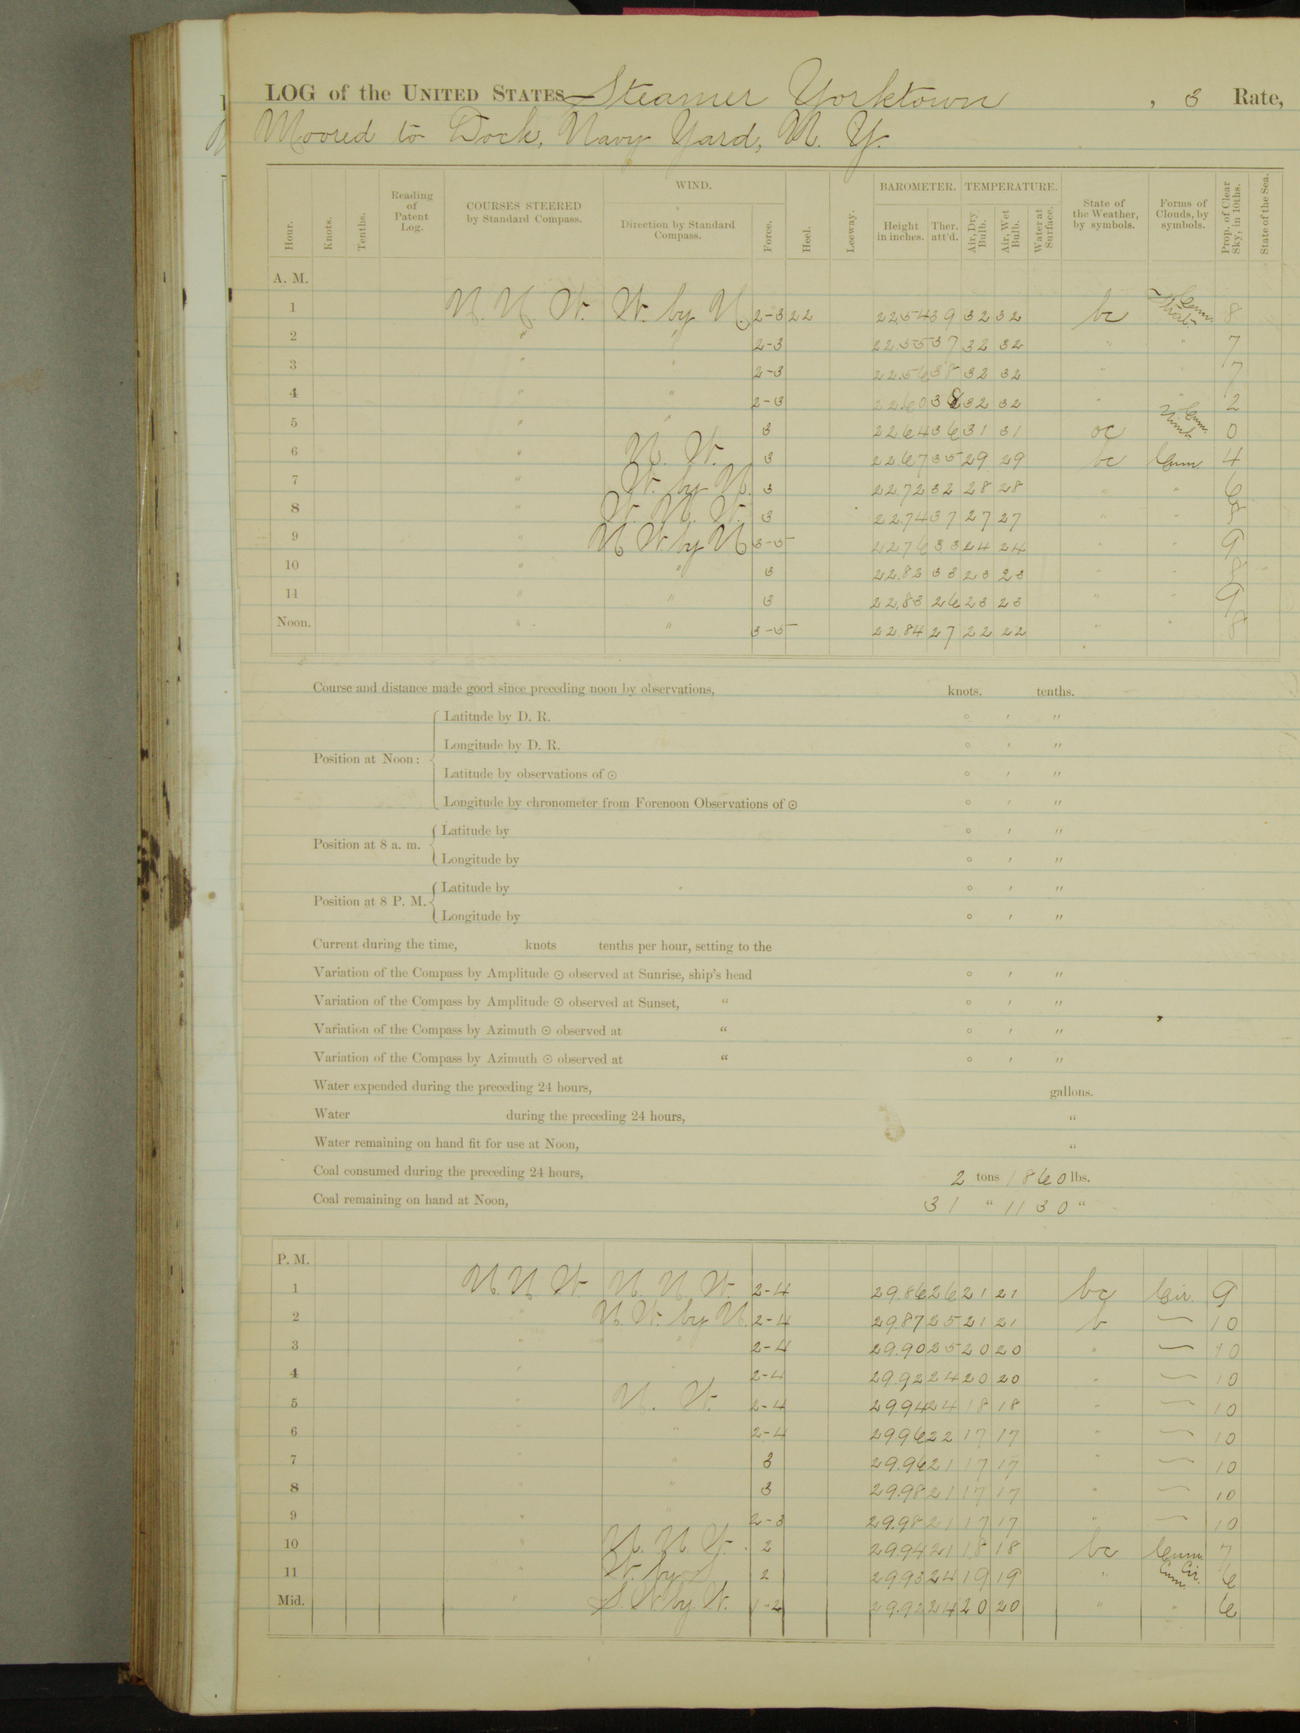 LOG of the UNITED STATES Steamer Yorktown, 3 Rate,
Moored to Dock, Navy Yard, N. Y.
Hour. Knots. Tenths. Reading of Patent Log. COURSES STEERED by Standard Compass. WIND. Direction by Standard Compass. Force. Heel. Leeway. BAROMETER. Height in inches. Ther. att'd. TEMPERATURE. Air, Dry Bulb. Air, Wet Bulb. Water at Surface. State of the Weather, by symbols. Forms of Clouds, by symbols. Prop. of Clear Sky, in 10ths. State of the Sea.
A. M.
1 N. N. W. W. by N. 2-3 22 22 54 39 32 32 bc Cum. 8
2 " " 2-3 22.55 37 32 32 " " 7
3 " " 2-3 22.56 38 32 32 " " 7
4 " " 2-3 22.60 38 32 32 " " 2
5 " " 3 22 64 36 31 31 oc Cum. Nimb. 0
6 " N. W. 3 22 67 35 29 29 bc Cum 4
7 " W. by N. 3 22.72 32 28 28 " " 6
8 " W. N. W. 3 22.74 37 27 27 " "
9 " N W by N 3-5 22 76 33 24 24 " " 9
10 " " 3 22.82 33 23 23 " " 8
11 " " 3 22.83 26 23 23 " " 9
Noon. " " 3-5 22.84 27 22 22 " " 8
Course and distance made good since preceding noon by observations, knots, tenths.
Position at Noon: Latitude by D. R. ° ′ ″
Longitude by D. R. ° ′ ″
Latitude by observations of ☉ ° ′ ″
Longitude by chronometer from Forenoon Observations of ☉ ° ′ ″
Position at 8 a. m. Latitude by ° ′ ″
Longitude by ° ′ ″
Position at 8 P. M. Latitude by ° ′ ″
Longitude by ° ′ ″
Current during the time, knots tenths per hour, setting to the
Variation of the Compass by Amplitude ☉ observed at Sunrise, ship's head ° ′ ″
Variation of the Compass by Amplitude ☉ observed at Sunset, " ° ′ ″
Variation of the Compass by Azimuth ☉ observed at " ° ′ ″
Variation of the Compass by Azimuth ☉ observed at " ° ′ ″
Water expended during the preceding 24 hours, gallons.
Water during the preceding 24 hours, "
Water remaining on hand fit for use at Noon, "
Coal consumed during the preceding 24 hours, 2 tons 1860 lbs.
Coal remaining on hand at Noon, 31 " 1130 "
P. M.
1 N. N. W N. N. W. 2-4 29.86 26 21 21 bc Cir. 9
2 " N. W. by N. 2-4 29.87 25 21 21 b — 10
3 " " 2-4 29.90 25 20 20 " — 10
4 " " 2-4 29.92 24 20 20 " — 10
5 " N. W. 2-4 29.94 24 18 18 " — 10
6 " " 2-4 29.96 22 17 17 " — 10
7 " " 3 29.96 21 17 17 " — 10
8 " " 3 29.98 21 17 17 " — 10
9 " " 2-3 29.98 21 17 17 " — 10
10 " 2 29.94 21 18 18 bc Cum 7
11 " W. by S 2 29.93 24 19 19 " Cum. Cir. 6
Mid. " S. W by W. 1-2 29.92 24 20 20 " " 6